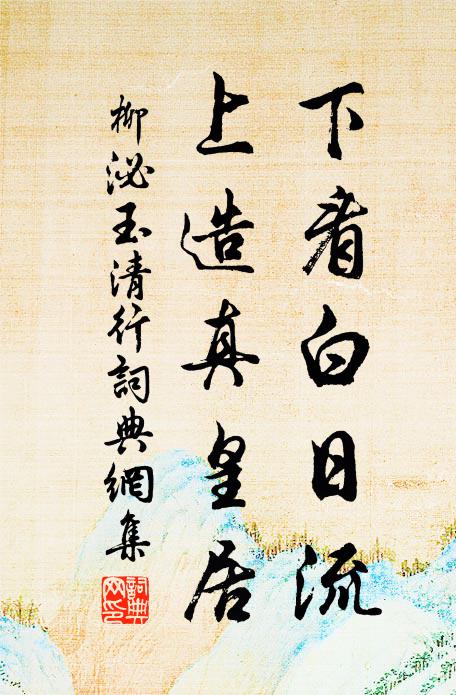 下看白日流
上造真皇居
柳泌玉清行詞典網集
詞典